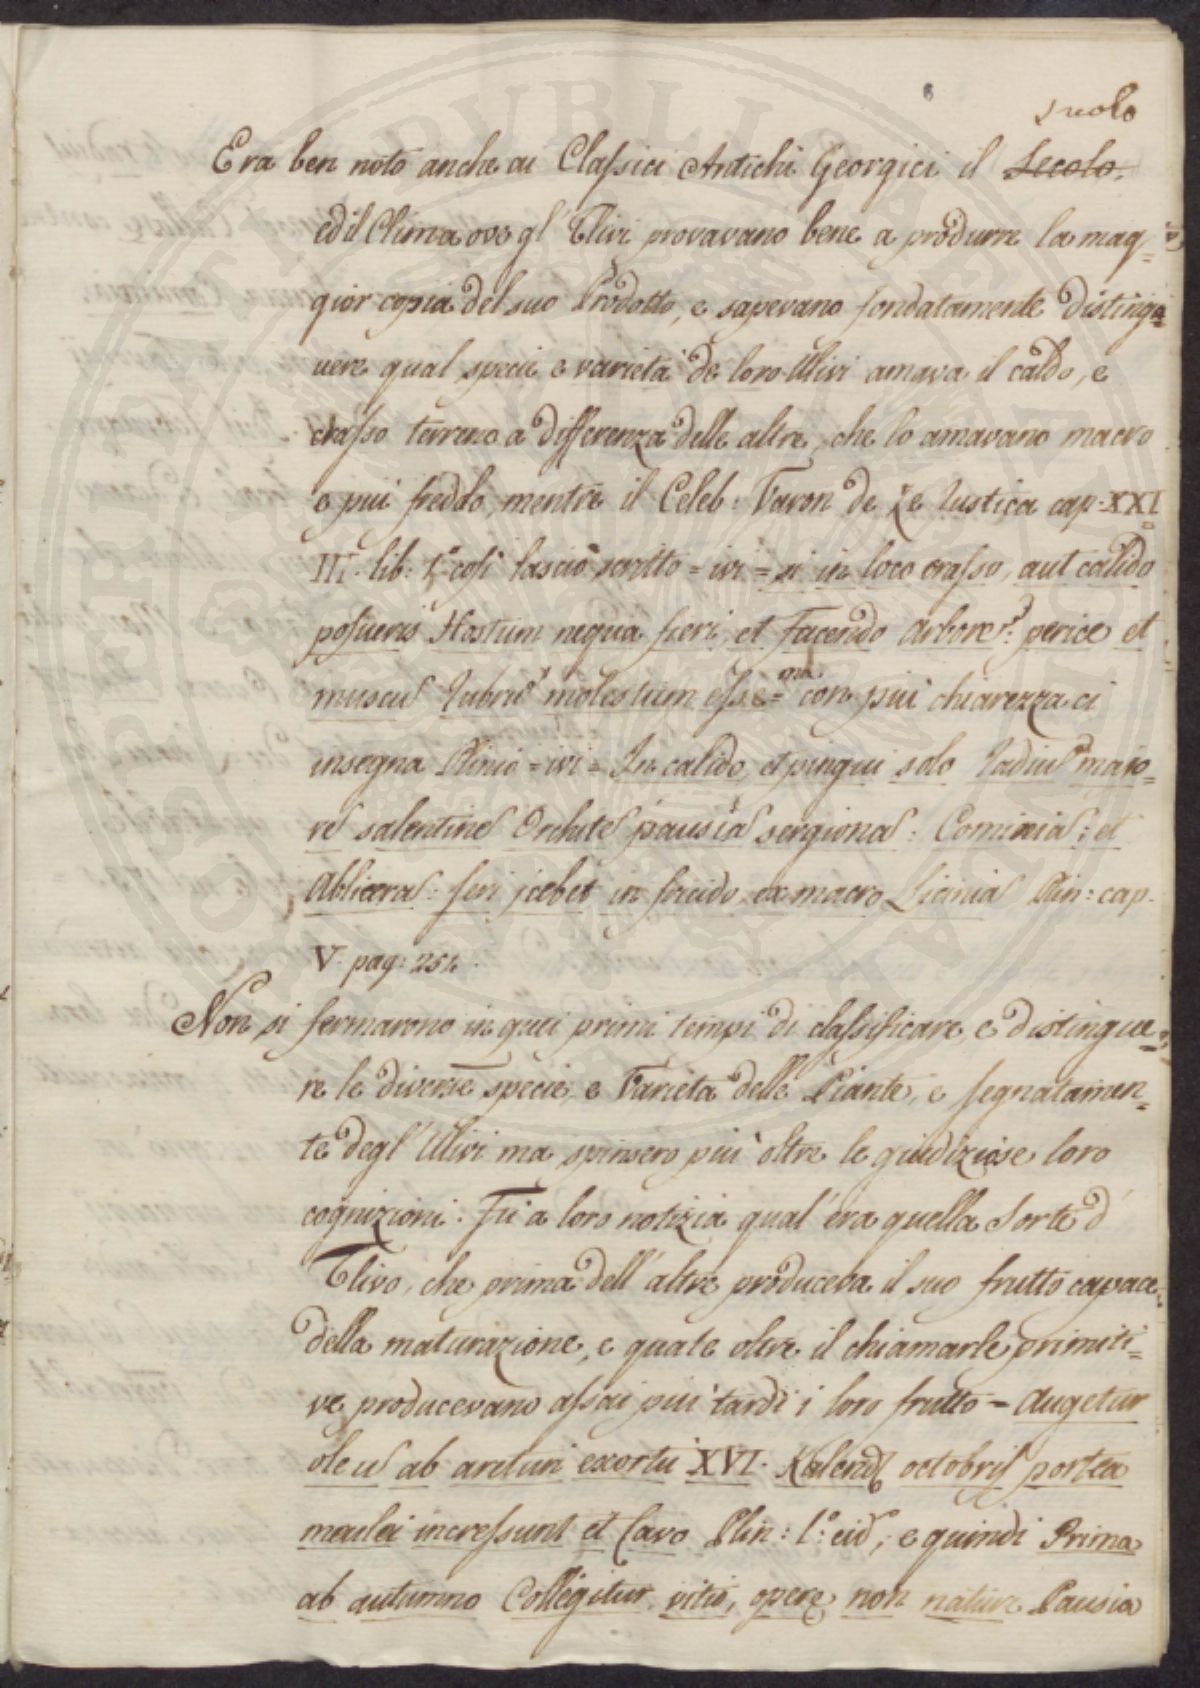 suolo
Era ben noto anche ai Classici Antichi Georgici il Secolo
ed il Clima ove gl' Ulivi provavano bene a produrre la mag=
gior copia del suo Prodotto, e sapevano fondatamente disting=
uere qual specie e varietà de loro Ulivi amava il caldo, e
crasso terreno a differenza delle altre, che lo amavano macro
e più freddo, mentre il Celeb: Varon de Re Rustica cap. XXI
III. lib: 1.° cosi lasciò scritto = ivi = si in loco crasso, aut calido
posueris Hostum nequa fieri, et facendo arbores perire et
muscus rubrus molestum esse = ma con più chiarezza ci
insegna Plinio = ivi = In calido, et pingui solo Radius majo=
res salentines Orchites pausias sergionas: Cominias: et
Abliceras: seri jcebet in frigido, ex macro Licinias Plin: cap.
V. pag: 252.
Non si fermarono in quei primi tempi di classificare, e distingue=
re le diverse specie, e Varietà delle Piante, e segnatamen=
te degl' Ulivi ma spinsero più oltre le giudiziose loro
cognizioni. Fù a loro notizia qual' era quella Sorte d'
Ulivo, che prima dell' altre produceva il suo frutto capace
della maturazione, e quale oltre il chiamarle primiti=
ve producevano assai più tardi i loro frutto = Augetur
oleus ab arcturi exortu XVI. Kalend. octobris postea
nuclei incressunt et Caro Plin: l.° eid°, e quindi Prima
ab autumno Colligitur, vitio, opere non nature Pausia